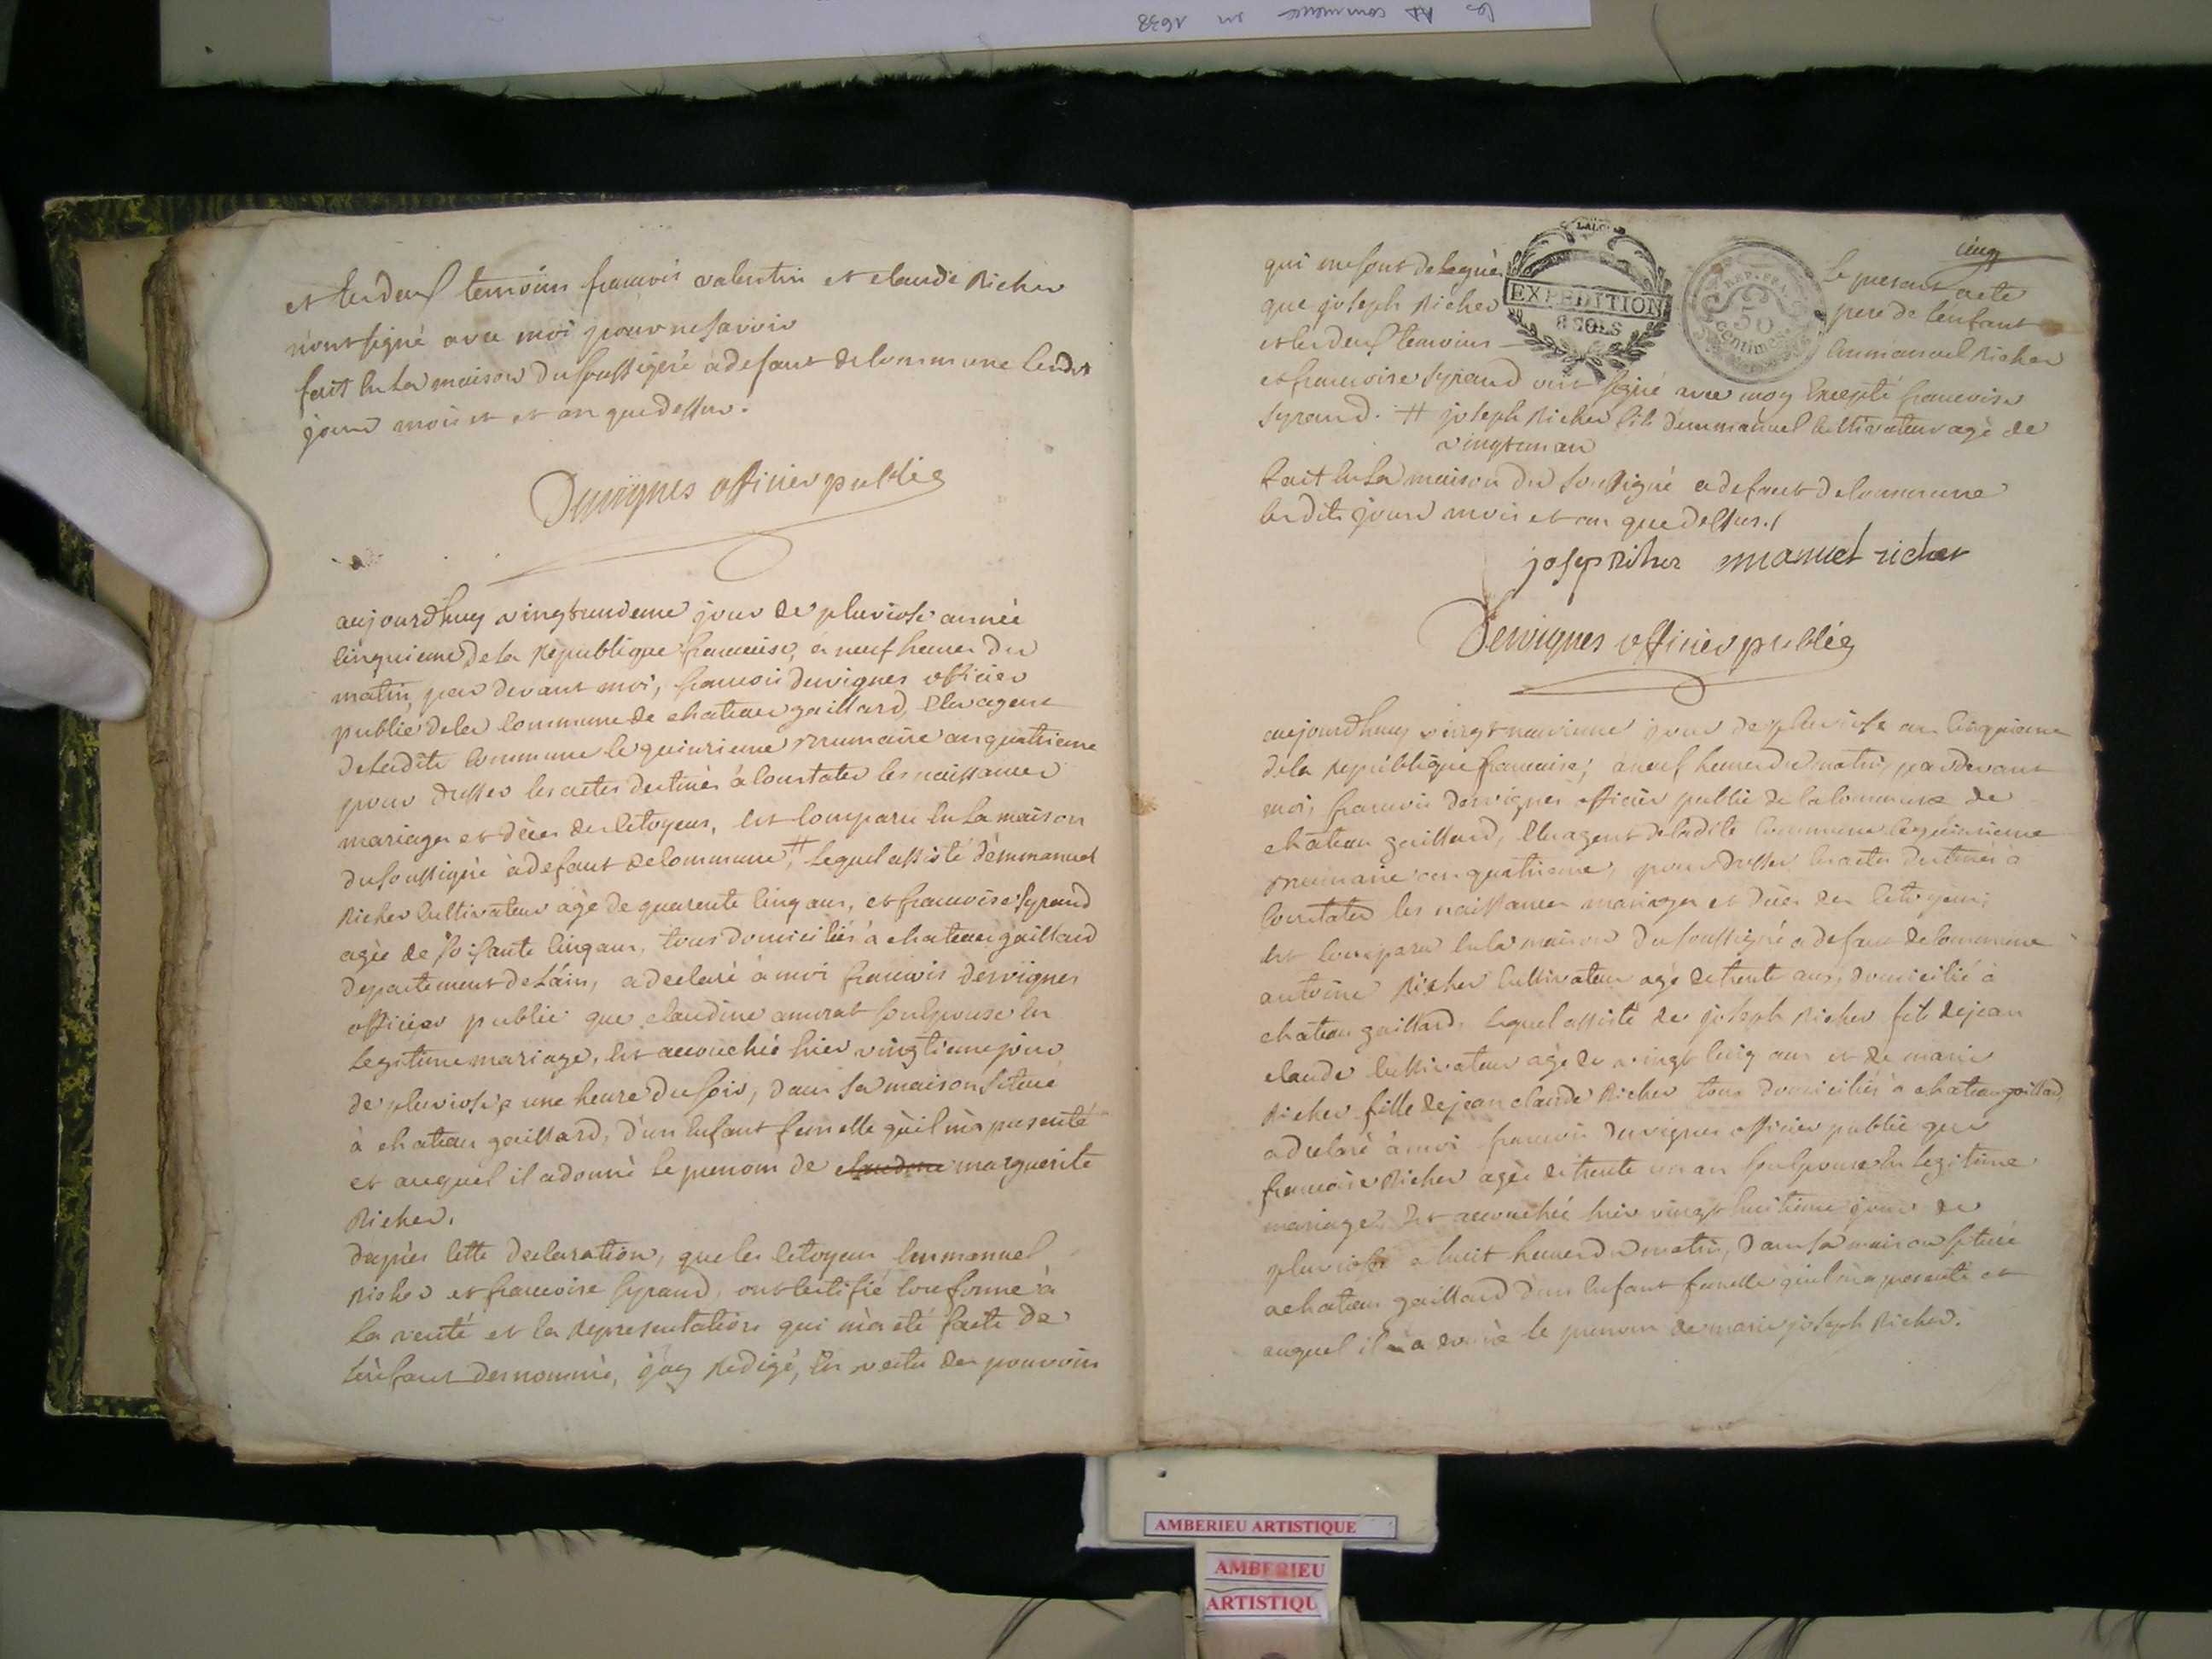 les AD commence en 1638
et les deux temoins francois valentin et claude Richer
n'ont signé avec moi pour ne savoir
fait en la maison du soussigné a defaut de commune lesdits
jour mois et et an que dessus.
Dervignes officier public
aujourdhuy vingt unieme jour de pluviose année
cinquieme de la Republique francaise, a neuf heures du
matin, par devant moi, francois dervignes officier
public de la commune de chateau gaillard, Elu agent
de ladite commune le quinzieme Brumaire an quatrieme
pour dresser les actes destinés à constater les naissances
mariages et décès des citoyens, est comparu en la maison
du soussigné à defaut de commune, # lequel assisté d'emmanuel
Richer cultivateur agé de quarente cinq ans, et francoise Syrand
agée de soisante cinq ans, tous domiciliés à chateau gaillard
departement de L'ain, a declaré à moi francois dervignes
officier public que claudine amurat son epouse en
legitime mariage, est accouchée hier vingtieme jour
de pluviose a une heure du soir, dans sa maison située
à chateau gaillard, d'un enfant femelle qu'il m'a presenté
et auquel il a donné le prenom de claudine marguerite
Richer.
daprès cette declaration, que les citoyens Emmanuel
Richer et francoise Syrand, ont certifié conforme à
la verité et la Representation qui m'a été faite de
l'enfant denommé, j'ay Redigé, en vertu des pouvoirs
cinq
qui me sont delegués Le present acte
que joseph Richer pere de l'enfant
et les deux temoins Emmanuel Richer
EXPEDITION
8 SOLS
REP. FRA.
50
centimes
et francoise Syrand ont signé avec moy Excepté francoise
Syrand. # joseph Richer fils d'emmanuel cultivateur agé de
vingt un an
fait en la maison du soussigné a defaut de commune
lesdits jour mois et an que dessus./
josep Richer manuel richer
Dervignes officier public
aujourdhuy vingt neuvieme jour de pluviose an cinquieme
de la Republique francaise; à neuf heures du matin, par devant
moi, francois dervignes officier public de la commune de
chateau gaillard, Elu agent de ladite commune le quinzieme
Brumaire an quatrieme, pour dresser les actes destinés à
constater les naissances mariages et décès des citoyens;
est comparu en la maison du soussigné a defaut de commune
antoine Richer cultivateur agé de trente ans, domicilié à
chateau gaillard, lequel assisté de joseph Richer fils de jean
claude cultivateur agé de vingt cinq ans et de marie
Richer fille de jean claude Richer tous domiciliés à chateau gaillard,
a declaré à moi francois dervignes officier public que
francoise Richer agée de trente un an son epouse en legitime
mariage, est accouchée hier vingt huitieme jour de
pluviose a huit heures du matin, dans sa maison située
a chateau gaillard d'un enfant femelle qu'il m'a presenté et
auquel il a donné le prenom de marie joseph Richer.
AMBERIEU ARTISTIQUE
AMBERIEU
ARTISTIQU